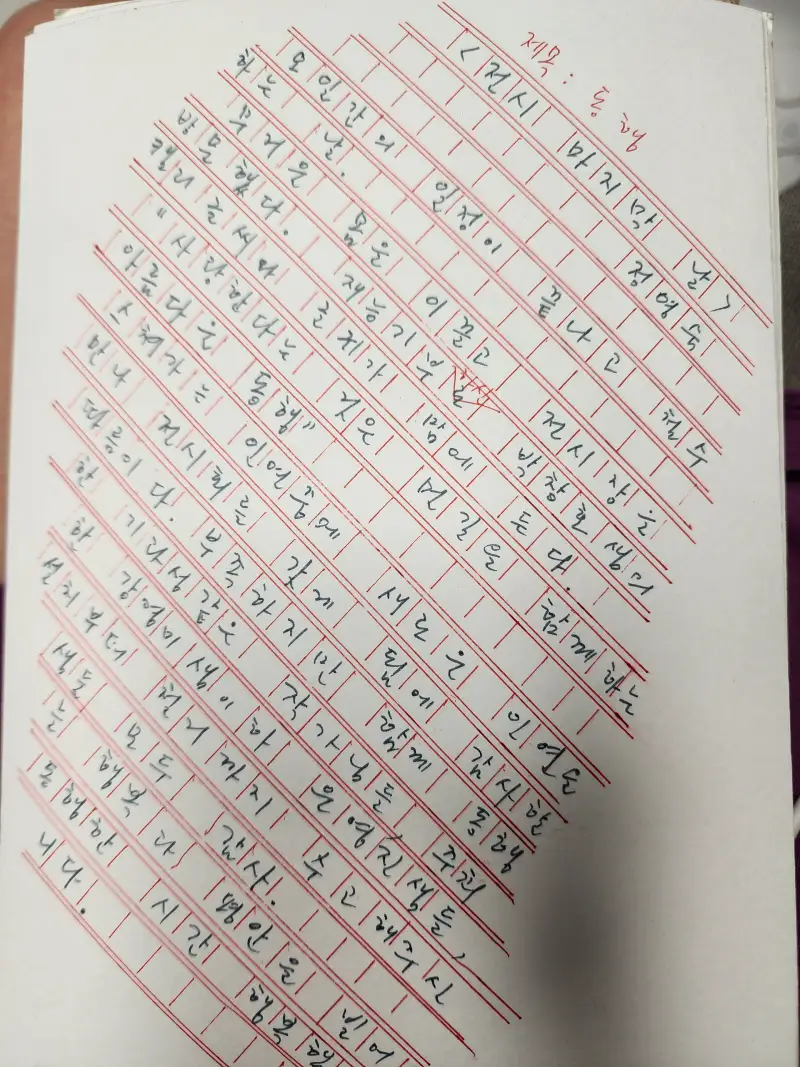 제목: 동행
<전시 마지막 날>
정영숙
오일간의 일정이 끝나고 철수
하는 날.
무거운 몸을 이끌고 전시장을
방문했다. 재능기부 한 박창호 쌤의
캘리글씨 문체가 맘에 든다.
"사랑한다는 것은 먼길을 함께하는
아름다운 동행"
스쳐가는 인연속에 새로운 인연을
만나 전시회를 갖게 됨에 감사할
따름이다. 부족하지만 함께 동행
한 기라성같은 작가님들 주최
한 쌤, 쌤들,
설치부터 철거까지 수고해주신
쌤들 모두 감사.
늘 행복과 평안을 빌며
동행한 시간 행복했습
니다.